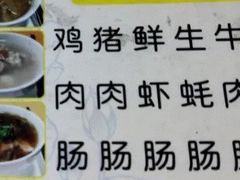 鸡猪鲜生牛
肉肉虾蚝肉
肠肠肠肠肠